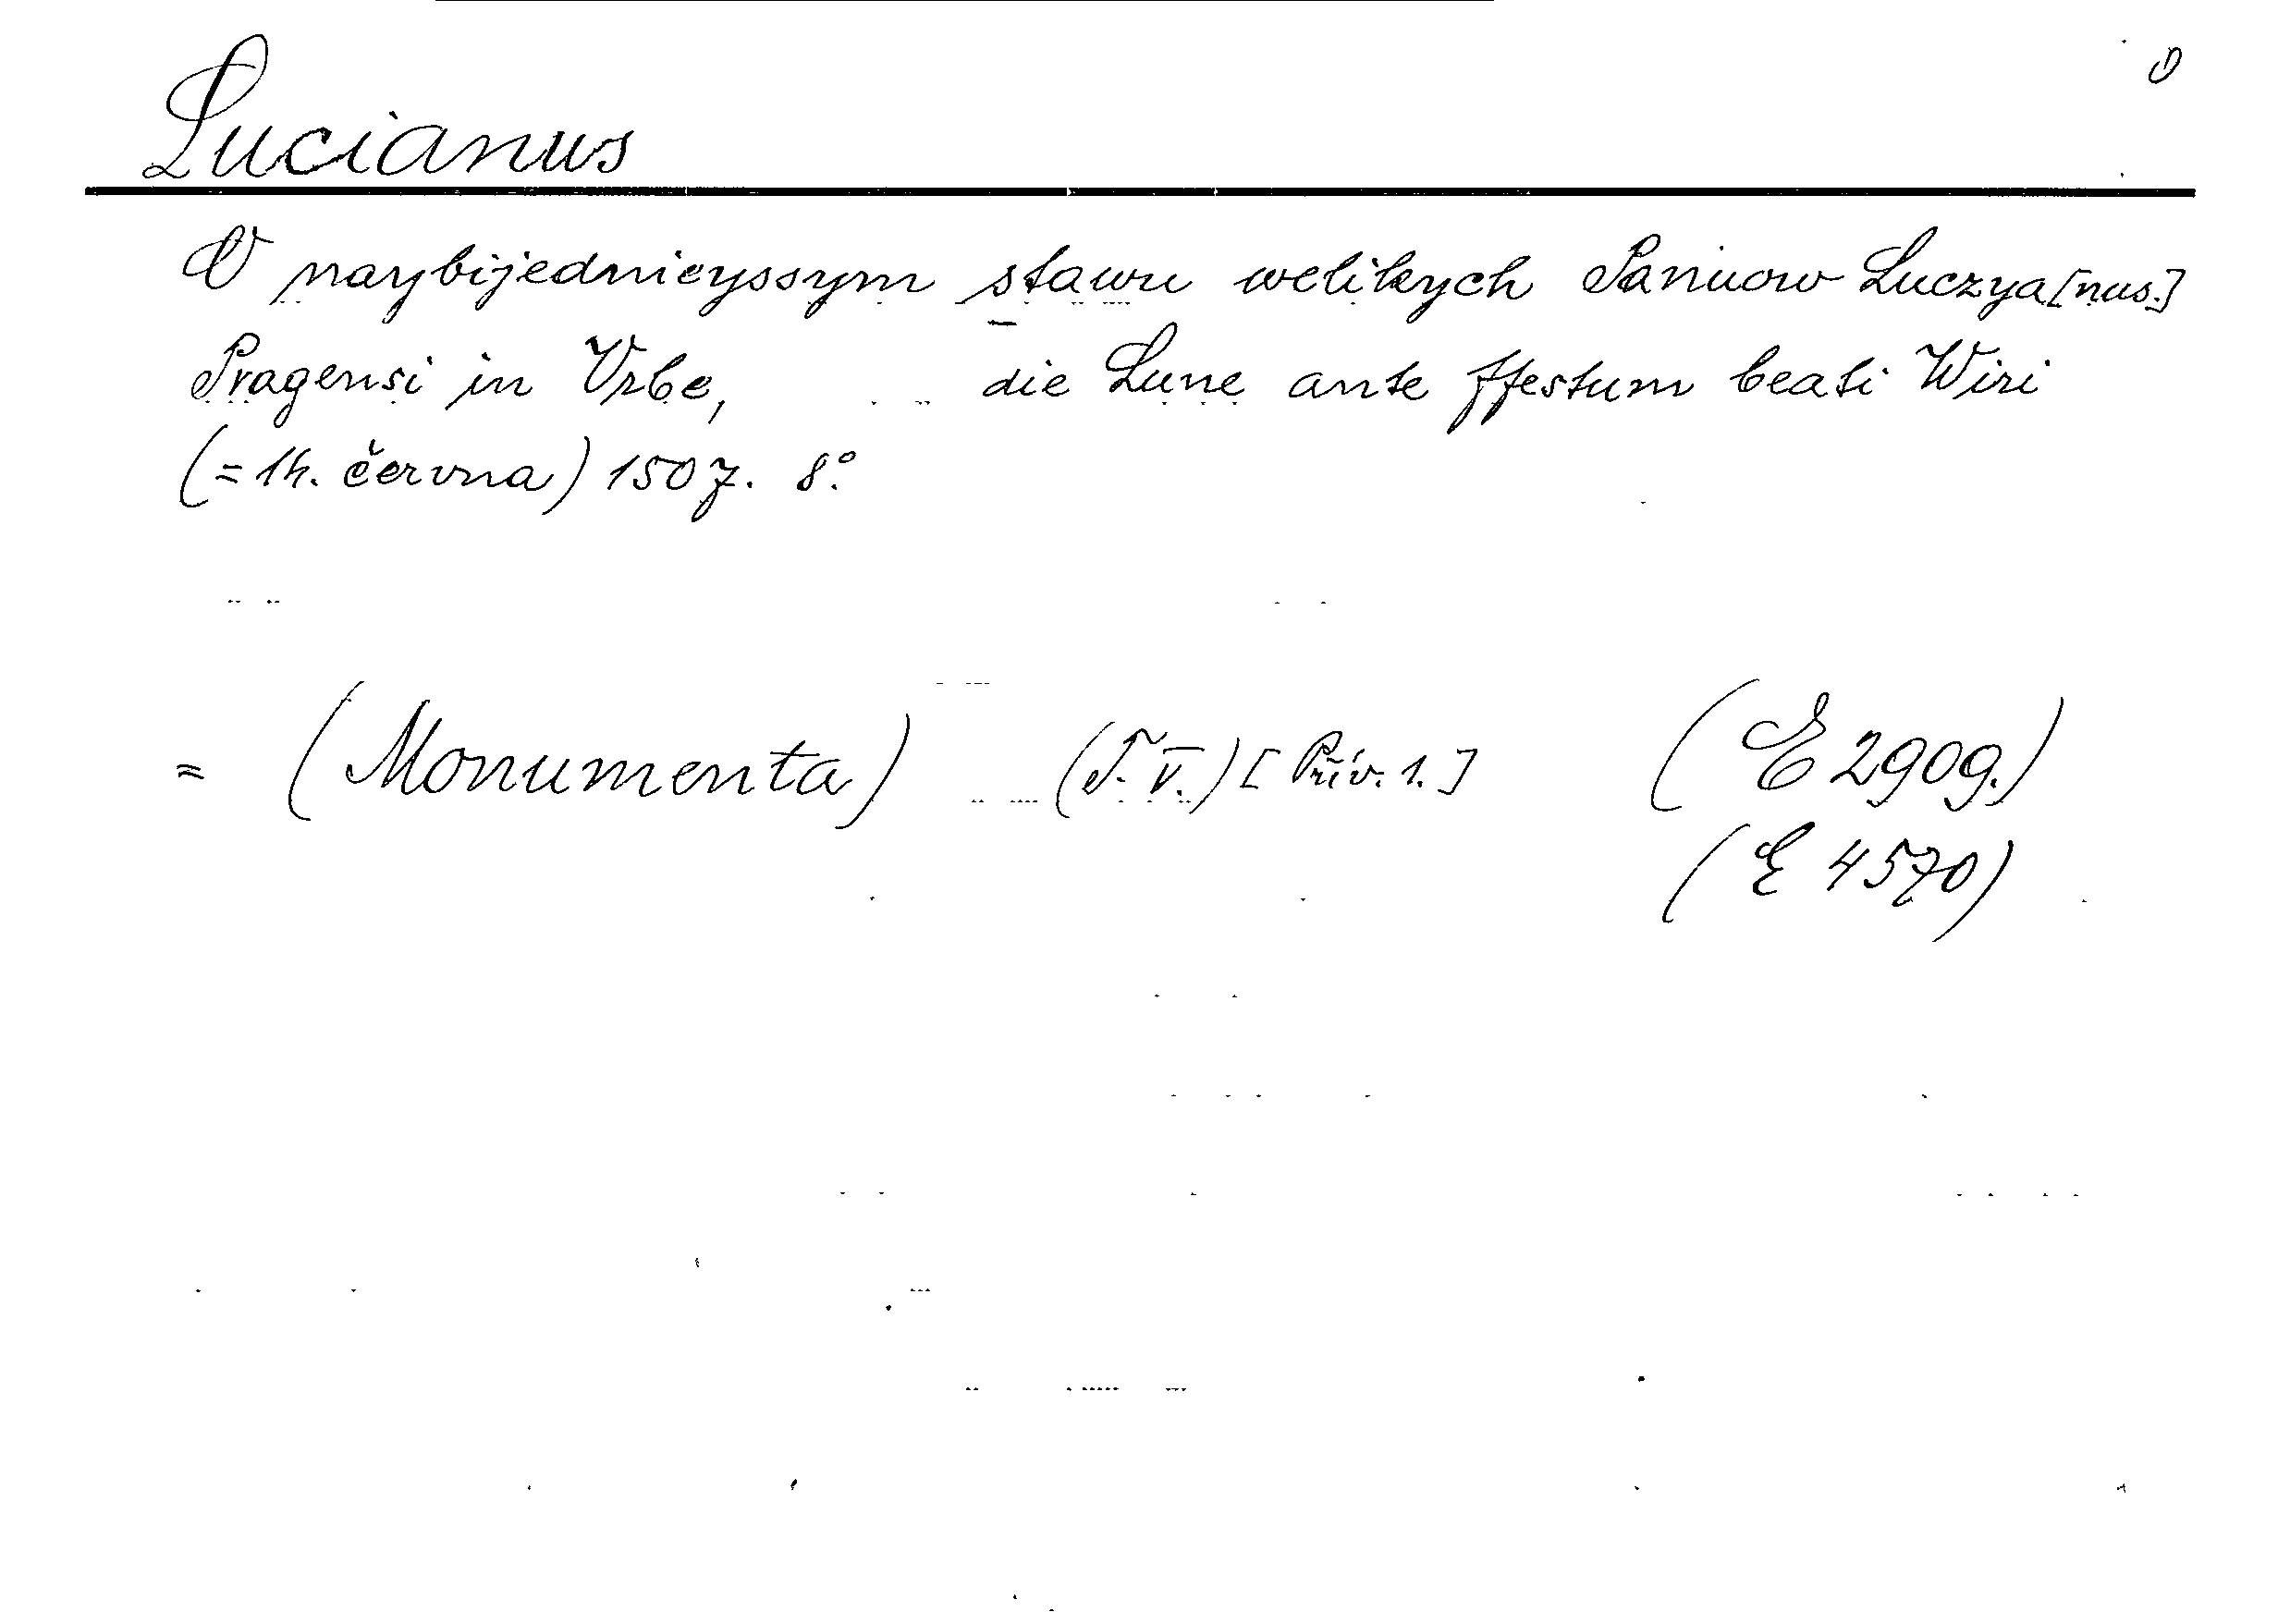 O
Lucianus
O naybijednieyssym stawu welikych Panuow Luczya[nus.]
Pragensi in Vrbe, die Lune ante ffestum beati Wiri
(=14. června) 1507. 8°.
= (Monumenta) (T. V.) [Přív. 1.] (E 2909.)
(E 4570)